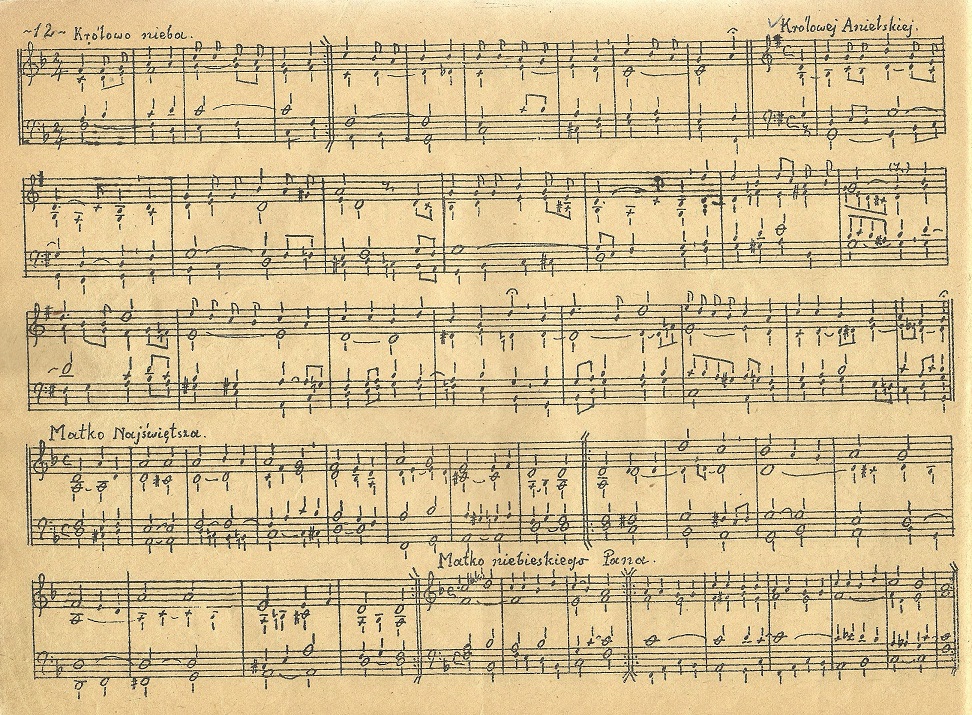 ~12~ Królowo nieba.
Królowej Anielskiej.
Matko Najświętsza.
Matko niebieskiego Pana.